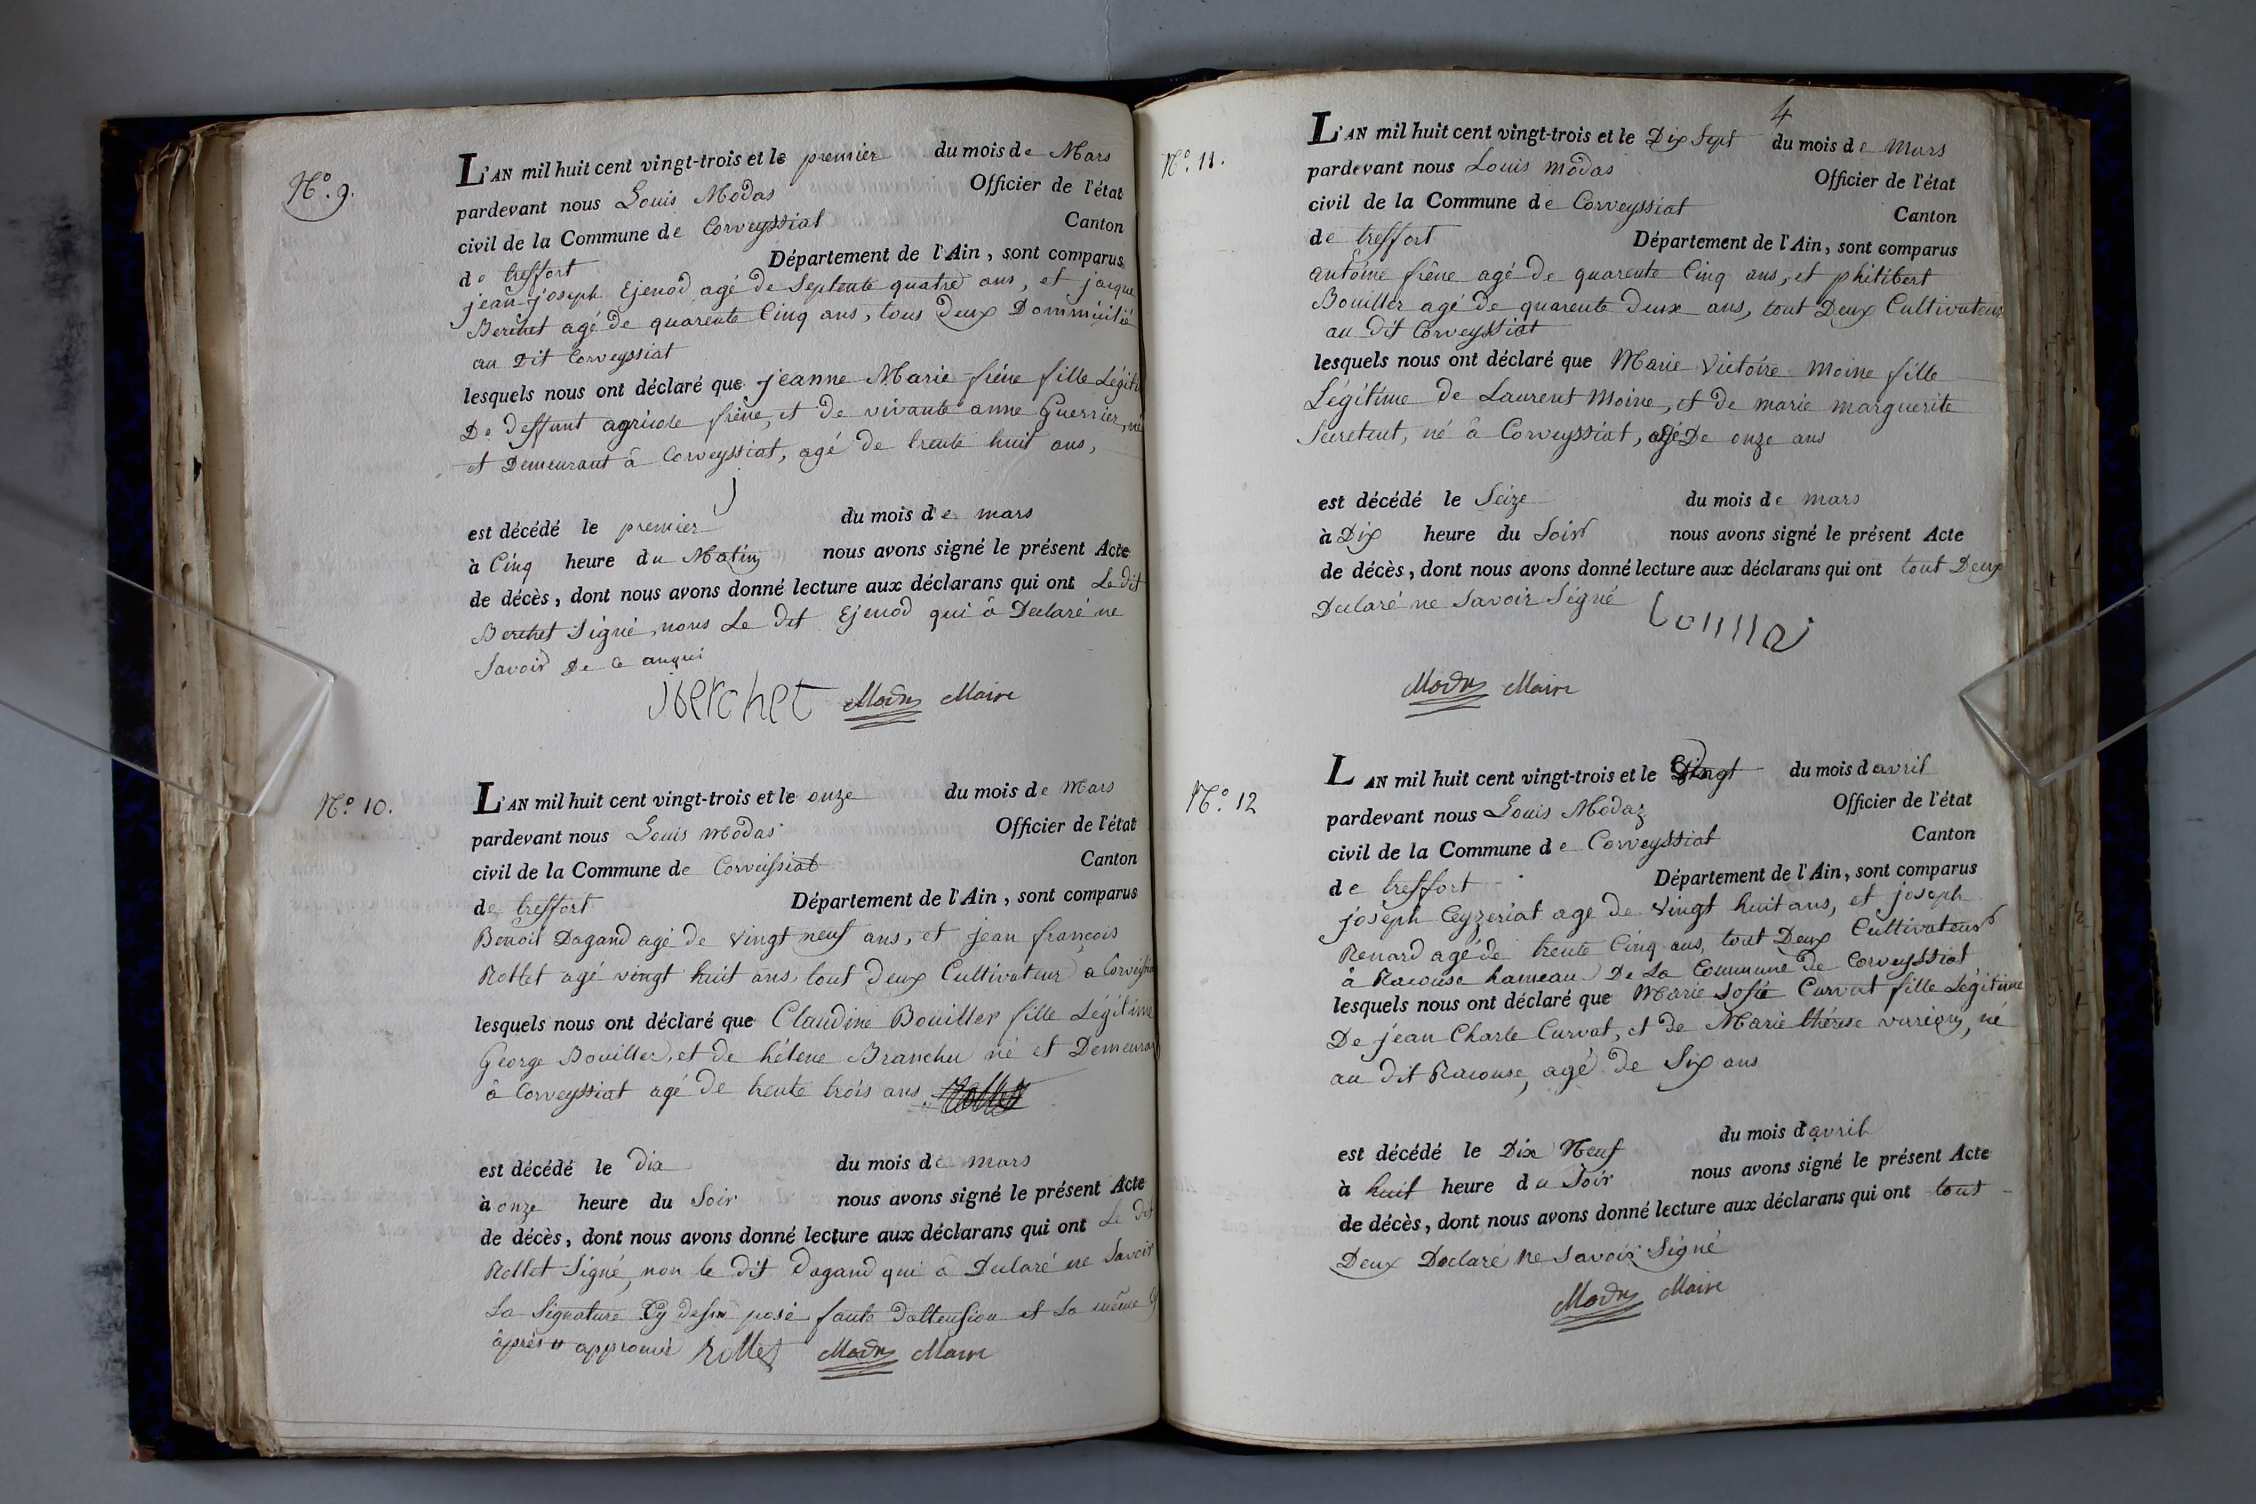 N.o 9.
L'AN mil huit cent vingt-trois et le premier du mois de Mars
pardevant nous Louis Modas Officier de l'état
civil de la Commune de Corveyssiat Canton
de treffort Département de l'Ain, sont comparus
jean-joseph Ejenod agé de Septente quatre ans, et jacque
Berchet agé de quarente Cinq ans, tous deux Dommicilié
au Dit Corveyssiat
lesquels nous ont déclaré que jeanne Marie frêne fille Légiti
De deffunt agricole frêne, et de vivante anne Guerrier, né
et Demeurant â Corveyssiat, agé de trente huit ans,
est décédé le premier du mois de mars
à Cinq heure du Matin nous avons signé le présent Acte
de décès, dont nous avons donné lecture aux déclarans qui ont Le dit
Berchet Signé, nons Le dit Ejenod qui â Declaré ne
Savoir De ce
jberchet Modas Maire
N.o 10.
L'AN mil huit cent vingt-trois et le onze du mois de Mars
pardevant nous Louis modas Officier de l'état
civil de la Commune de Corveissiat Canton
de treffort Département de l'Ain, sont comparus
Benoit Dagand agé de vingt neuf ans, et jean françois
Rollet agé vingt huit ans, tout deux Cultivateur a Corveissia
lesquels nous ont déclaré que Claudine Bouiller fille Légitime
George Bouiller, et de hélene Branchu né et Demeuran
â Corveyssiat agé de trente trois ans
est décédé le dix du mois de mars
à onze heure du Soir nous avons signé le présent Acte
de décès, dont nous avons donné lecture aux déclarans qui ont Le dit
Rollet Signé, non le dit Dagand qui â Declaré ne Savoir
La Signature Cy desu posé faute dattension et La même Cy
âprès approuvé Rollet Modas Maire
4
N.o 11.
L'AN mil huit cent vingt-trois et le Dix Sept du mois de Mars
pardevant nous Louis modas Officier de l'état
civil de la Commune de Corveyssiat Canton
de treffort Département de l'Ain, sont comparus
antoine frêne agé de quarente Cinq ans, et philibert
Bouiller agé de quarente deux ans, tout Deux Cultivateur
au dit Corveyssiat
lesquels nous ont déclaré que Marie Victoire Moine fille
Légitime de Laurent Moine, et de marie marguerite
Secretent, né â Corveyssiat, agé De onze ans
est décédé le Seize du mois de mars
à Dix heure du Soir nous avons signé le présent Acte
de décès, dont nous avons donné lecture aux déclarans qui ont tout Deux
Declaré ne Savoir Signé
Modas Maire
N.o 12
L'AN mil huit cent vingt-trois et le Vingt du mois d avril
pardevant nous Louis Modaz Officier de l'état
civil de la Commune de Corveyssiat Canton
de treffort Département de l'Ain, sont comparus
joseph Ceyzeriat age de vingt huit ans, et joseph
Renard agé de trente Cinq ans, tout Deux Cultivateur
â Racouse hameau De La Commune de Corveyssiat
lesquels nous ont déclaré que Marie Sofie Curvat fille Légitime
De jean Charle Curvat, et de Marie thérese varéon, né
au dit Racouse, agé de Six ans
est décédé le Dix Neuf du mois d avril
à huit heure du Soir nous avons signé le présent Acte
de décès, dont nous avons donné lecture aux déclarans qui ont tout
Deux Declaré ne Savoir Signé
Modas Maire